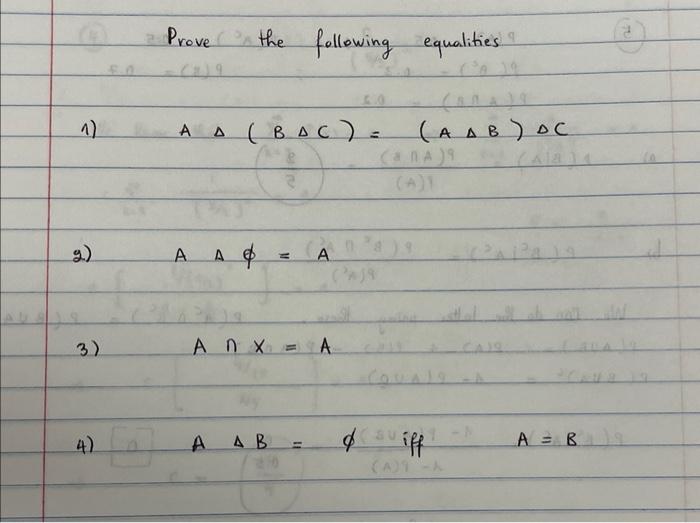 Prove the following equalities
1) A Δ ( B Δ C ) = ( A Δ B ) Δ C
2) A Δ ϕ = A
3) A ∩ X = A
4) A Δ B = ϕ iff A = B